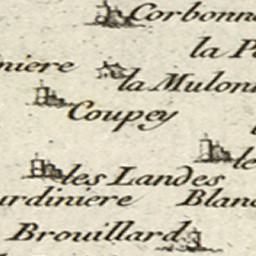 Corbonn
la P
niere
la Mulon
Coupey
le
les Landes
urdiniere Blan
Brouillard